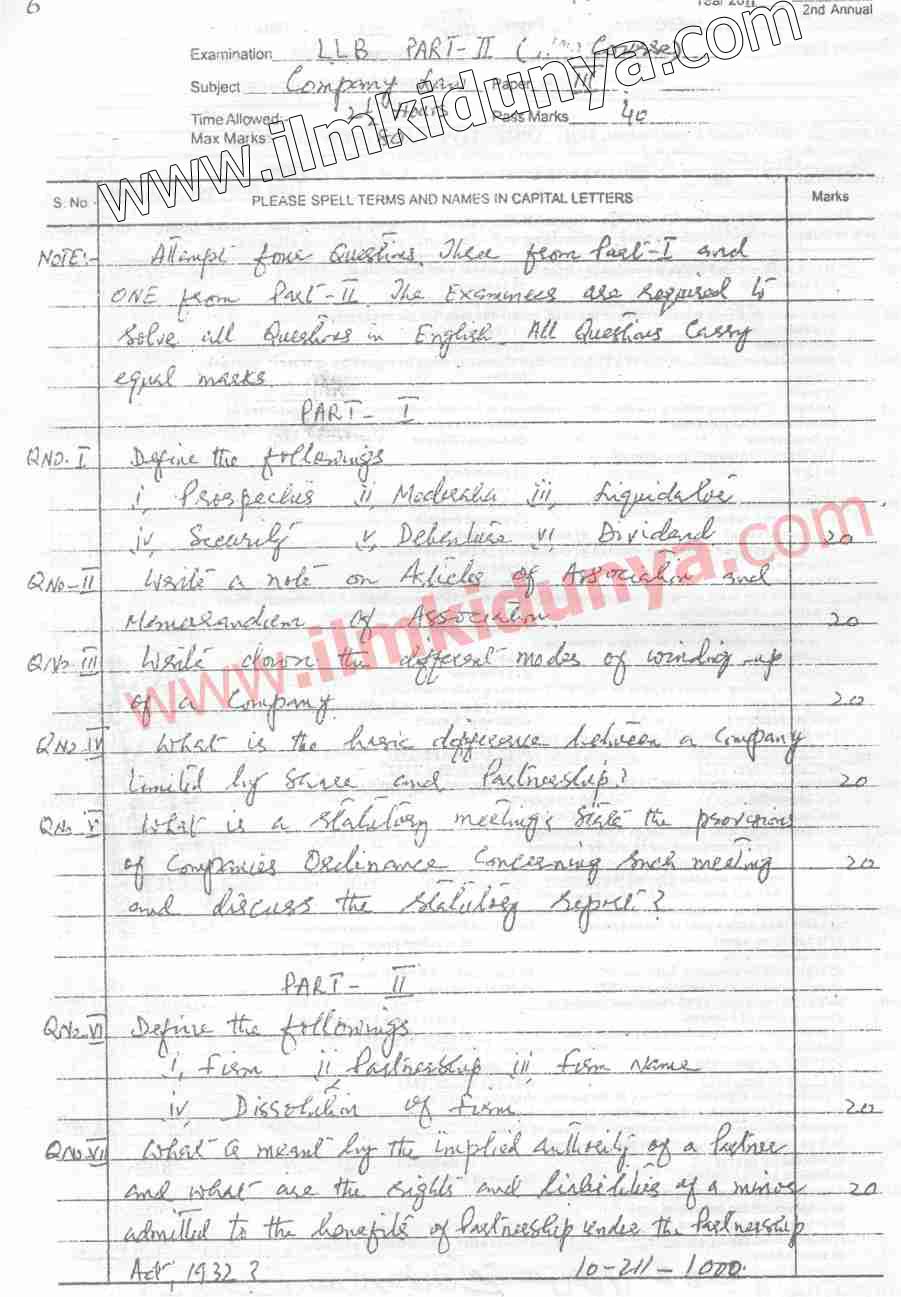 6
Year 2011
2nd Annual
Examination LLB PART-II ( Course)
Subject Company Law Paper IV
Time Allowed:- 2½ Hours Pass Marks 40
Max Marks:
www.ilmkidunya.com
S. No PLEASE SPELL TERMS AND NAMES IN CAPITAL LETTERS Marks
NOTE:- Attempt four Questions. Three from Part-I and
ONE from Part-II. The Examinees are required to
solve all Questions in English. All Questions Carry
equal marks
PART- I
QNO. I Define the followings
i, Prospectus ii, Modaraba iii, Liquidator
iv, Security v, Debenture vi, Dividend 20
QNo-II Write a note on Articles of Association and
Memorandum of Association 20
QNo. III Write down the different modes of winding-up
of a Company. 20
QNo. IV What is the basic difference between a Company
limited by Share and Partnership? 20
QNo. V What is a statutory meeting? State the provisions
of Companies Ordinance Concerning such meeting 20
and discuss the statutory report?
www.ilmkidunya.com
PART- II
QNo. VI Define the followings
i, Firm ii Partnership iii, Firm Name
iv, Dissolution of Firm 20
QNo. VII What is meant by the implied authority of a Partner
and what are the rights and liabilities of a minor 20
admitted to the benefits of Partnership under the Partnership
Act, 1932? 10-211-1000.